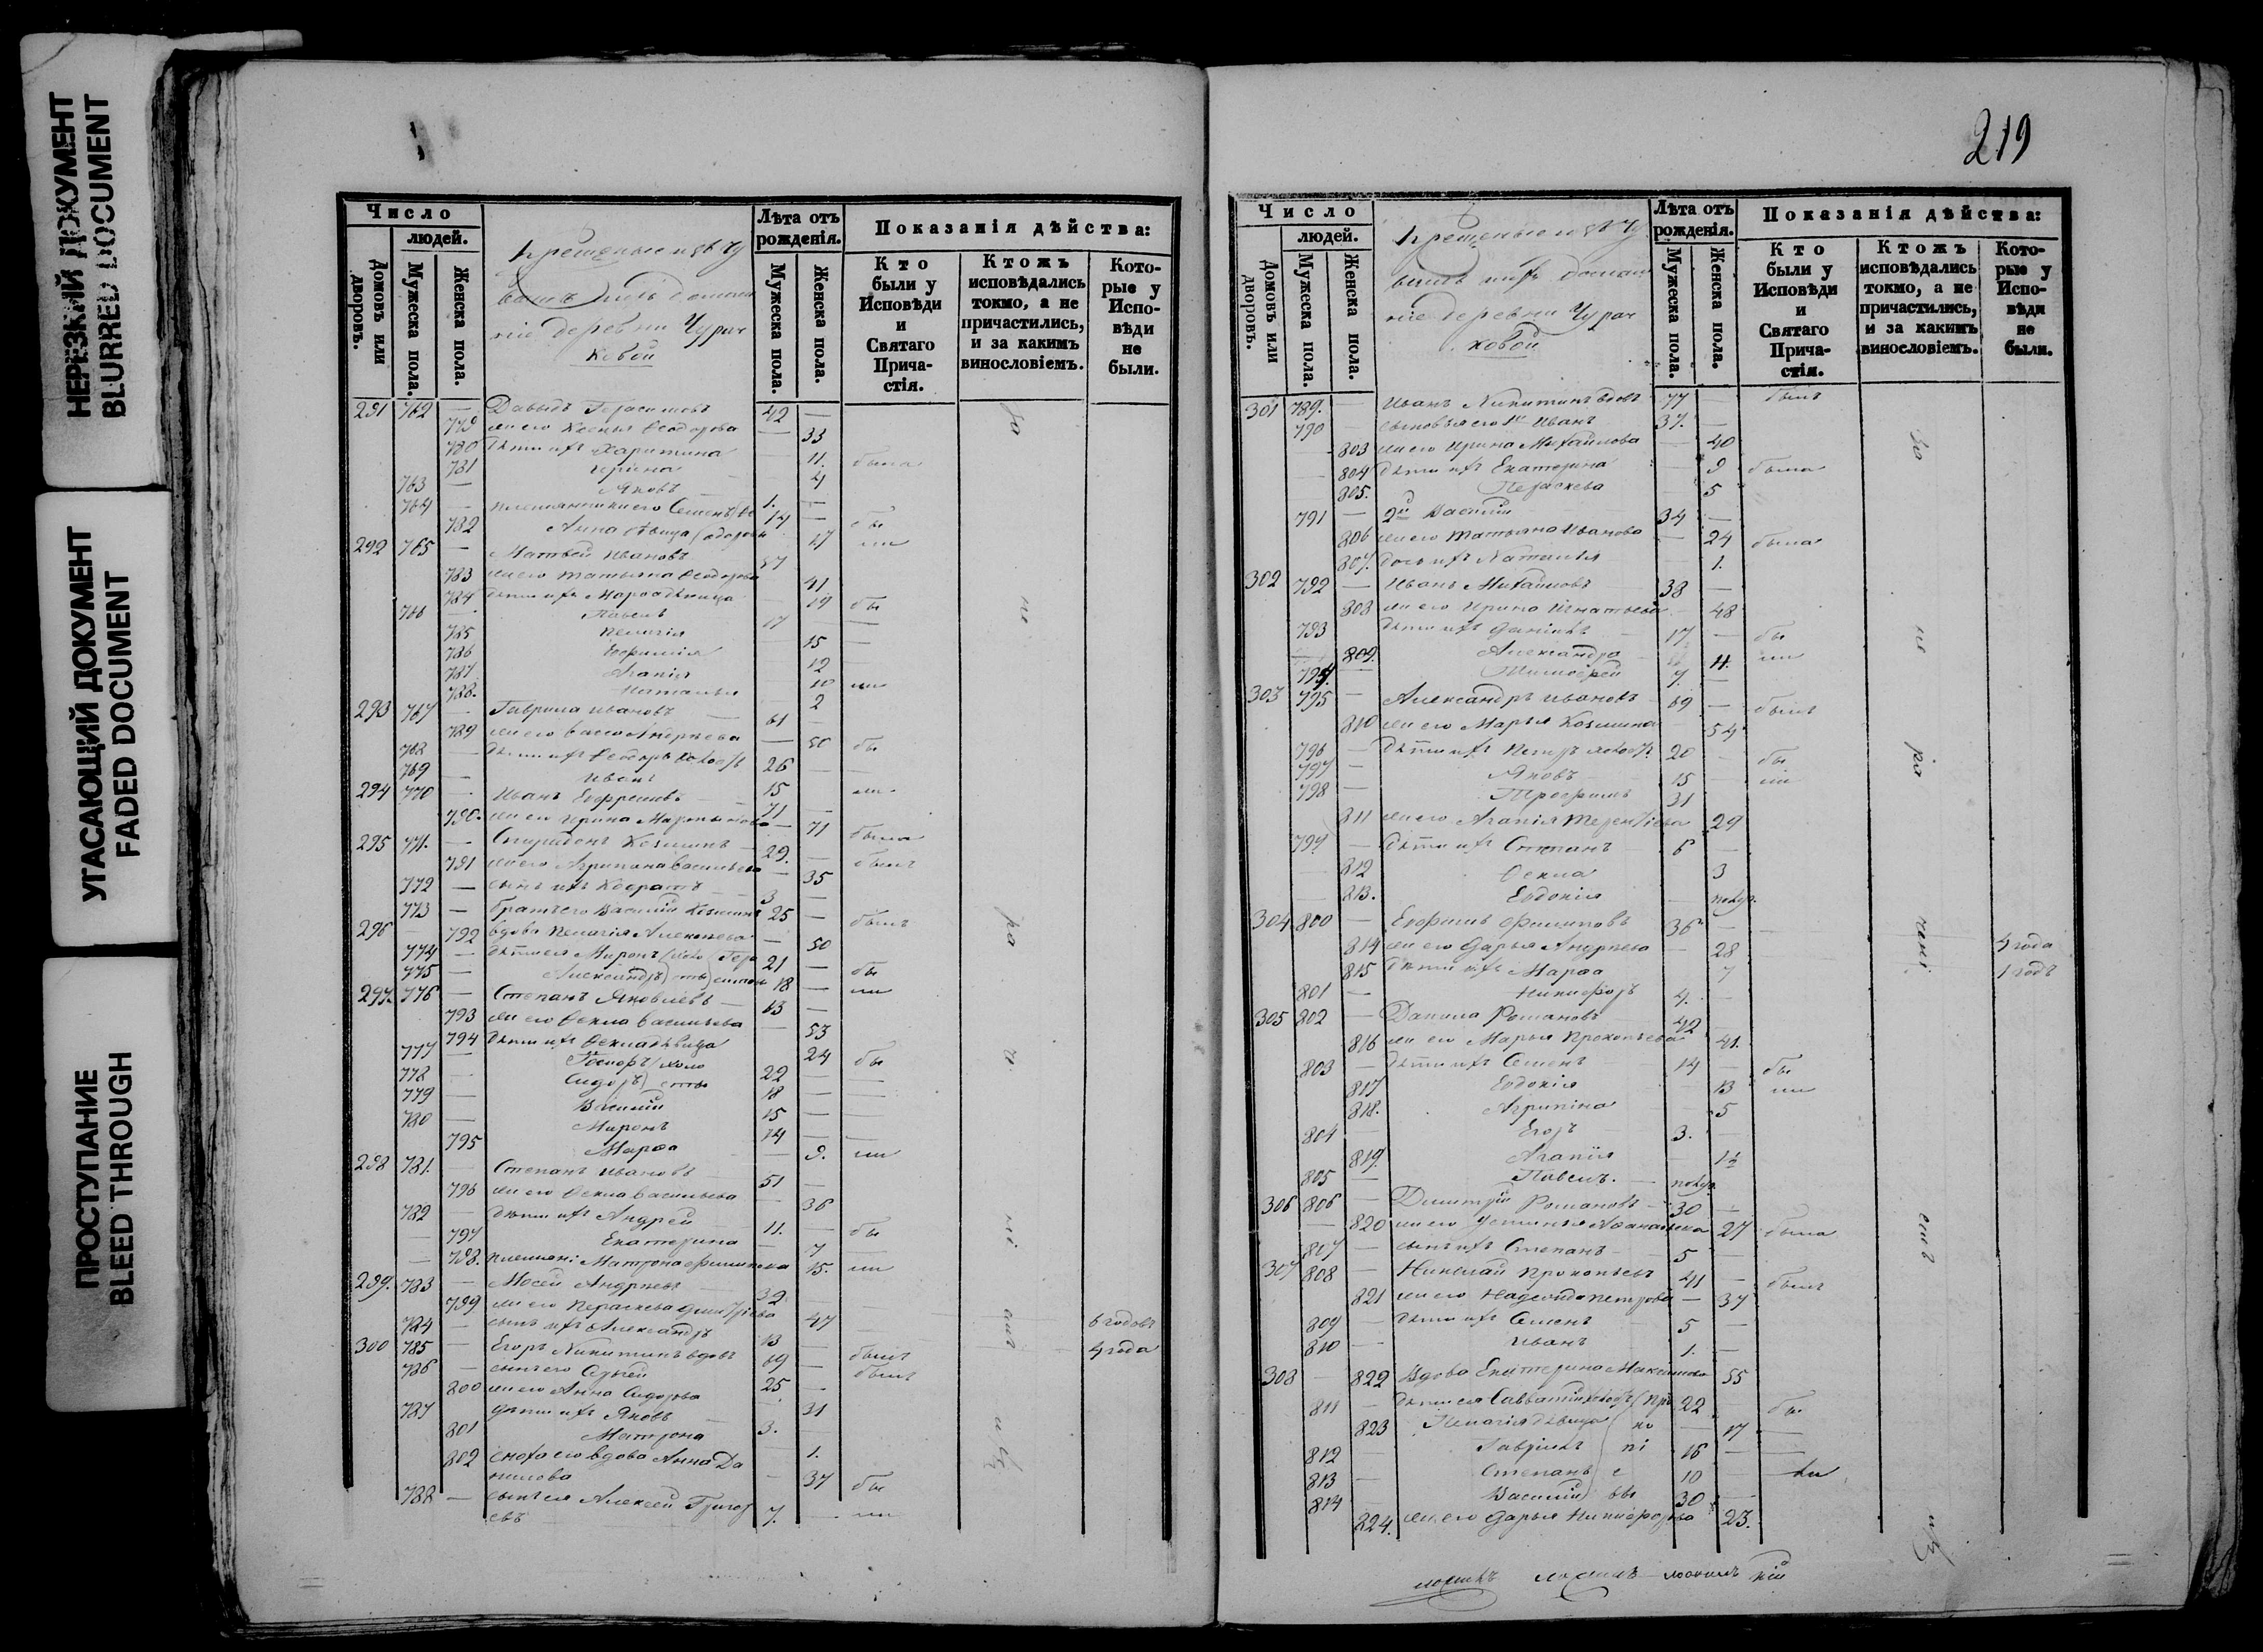 НЕРЕЗКИЙ ДОКУМЕНТ
BLURRED DOCUMENT
УГАСАЮЩИЙ ДОКУМЕНТ
FADED DOCUMENT
ПРОСТУПАНИЕ
BLEED THROUGH
Число
людей.
Домовъ или дворовъ.
Мужеска пола.
Женска пола.
Крещеные изъ Чу
вашъ
деревни Чурач
ковой
Лѣта отъ рожденія.
Мужеска пола.
Женска пола.
Показанія дѣйства:
Кто были у Исповѣди и Святаго Прича-стія.
Ктожъ исповѣдались токмо, а не причастились, и за какимъ винословіемъ.
Кото-рые у Испо-вѣди не были.
291 762 — Давыдъ Герасимовъ 42 —
779 жена его Ксенья Ѳеодорова — 33
780 дѣти ихъ Харитина 11. была
781 Ирина 4
763 — Яковъ 1. —
764 — племянники его Семенъ 14 —
782 Анна дѣвица 17
292 765 — Матвей Ивановъ
783 жена его Татьяна Ѳеодорова 41
784 дѣти ихъ Марѳа дѣвица 19 бы
766 — Павелъ 17 —
785 Пелагія 15
786 Евфимія 12
787 Агапія 10 ли
788. Наталья 2
293 767 — Гаврила Ивановъ 61 —
789 жена его Васса Андреева — 50 бы
768 — дѣти ихъ Ѳеодоръ 26 —
769 — Иванъ 15 ли
294 770 — Иванъ Ефремовъ 71 —
790. жена его Ирина Мартынова — 71 была
295 771. — Спиридонъ Козминъ 29. — былъ
791 жена его Агрипина Васильева — 35
772 — сынъ ихъ Кодратъ 3 —
773 — братъ его Василій Козминъ 25 — былъ
296 — 792 вдова Пелагія Алексеева — 50
774 — дѣти ея Миронъ 21 — бы
775 — Александръ 18 — ли
297. 776 — Степанъ Яковлевъ 63 —
793 жена его Ѳекла Васильева 53
794 дѣти ихъ Ѳекла дѣвица 24 бы
777 — 22 —
778 — Сидоръ 18 —
779 — Василій 15 —
780 — Миронъ 14 —
795 Марѳа — 9. ли
298 781. — Степанъ Ивановъ 51 —
796 жена его Ѳекла Васильева 36
782 — дѣти ихъ Андрей 11. — бы
797 Екатерина — 7
798. племян: Матрона 15. ли
299. 783 — Мосей Андреевъ 32
799 жена его Параскева 47
784 — сынъ ихъ Александръ 13 — 6 годовъ
300 785 — Егоръ Никитинъ вдовъ 69 — былъ 4 года
786 — сынъ его Сергей 25 — былъ
800 жена его Анна Сидорова 31
787 — дѣти ихъ Яковъ 3. —
801 Матрона 1.
802 сноха его вдова Анна Да
нилова — 37 бы
788 — сынъ ея Алексей Григор
евъ 7. — ли
219
Число
людей.
Домовъ или дворовъ.
Мужеска пола.
Женска пола.
Крещеные изъ Чу
вашъ
деревни Чурач
ковой
Лѣта отъ рожденія.
Мужеска пола.
Женска пола.
Показанія дѣйства:
Кто были у Исповѣди и Святаго Прича-стія.
Ктожъ исповѣдались токмо, а не причастились, и за какимъ винословіемъ.
Кото-рые у Испо-вѣди не были.
301 789. — Иванъ Никитинъ вдовъ 77 — былъ
790 — сыновья его 1й Иванъ 37. —
803 жена его Ирина Михайлова — 40
804 дѣти ихъ Екатерина 9 была
805. Параскева 5
791 — 2й Василій 34 —
806 жена его Татьяна Иванова — 24 была
807. дочь ихъ Наталья 1.
302 792 — Иванъ Михайловъ 38 —
808 жена его Ирина Игнатьева 48
793 дѣти ихъ Данилъ 17 — бы
809. Александра 11. ли
794. — Тимоѳей 7. —
303 795 — Александръ Ивановъ 69 — былъ
810 жена его Марья Козмина — 54
796 — дѣти ихъ Петръ 20 — бы
797 — Яковъ 15 ли
798 — Трофимъ 31
811 жена его Агапія Терентьева 29
799 — дѣти ихъ Степанъ 6 —
812 Ѳекла 3
813. Евдокія полуг.
304 800 — Евфимъ Филиповъ 36 —
814 жена его Дарья Андреева — 28 4 года
815 дѣти ихъ Марѳа 7 1 годъ
801 — Никифоръ 4. —
305 802 — Данила Романовъ 42
816 жена его Марья Прокопьева 41.
803 — дѣти ихъ Семенъ 14 — бы
817 Евдокія 13 ли
818. Агрипина 5
804 — Егоръ 3. —
819. Агапія 1½
805 — Павелъ. полуг.
306 806 — Димитрій Романовъ 30 —
820 жена его Устинья Аѳанасьева 27 была
807 — сынъ ихъ Степанъ 5 —
307 808 — Николай Прокопьевъ 41 — былъ
821 жена его Надежда Петрова — 37
809 — дѣти ихъ Семенъ 5 —
810 — Иванъ 1. —
308 — 822 Вдова Екатерина Максимова 55
811 — дѣти ея Савватій 22 — бы
823 Пелагія дѣвица — 17 —
812 Гаврилъ 16 —
813 — Степанъ 10 ли
814 — Василій 30 —
824. жена его Дарья Никифорова 23.